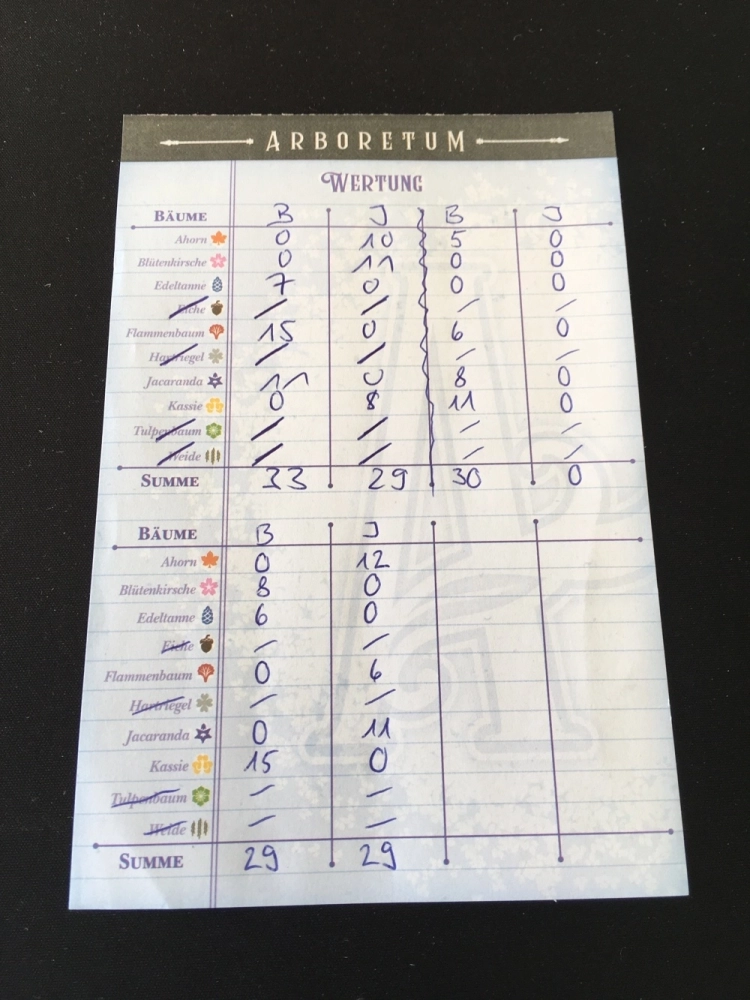 ARBORETUM
WERTUNG
BÄUME B J B J
Ahorn 0 10 5 0
Blütenkirsche 0 11 0 0
Edeltanne 7 0 0 0
Eiche / / / /
Flammenbaum 15 0 6 0
Hartriegel / / / /
Jacaranda 11 0 8 0
Kassie 0 8 11 0
Tulpenbaum / / / /
Weide / / / /
SUMME 33 29 30 0
BÄUME B J
Ahorn 0 12
Blütenkirsche 8 0
Edeltanne 6 0
Eiche / /
Flammenbaum 0 6
Hartriegel / /
Jacaranda 0 11
Kassie 15 0
Tulpenbaum / /
Weide / /
SUMME 29 29